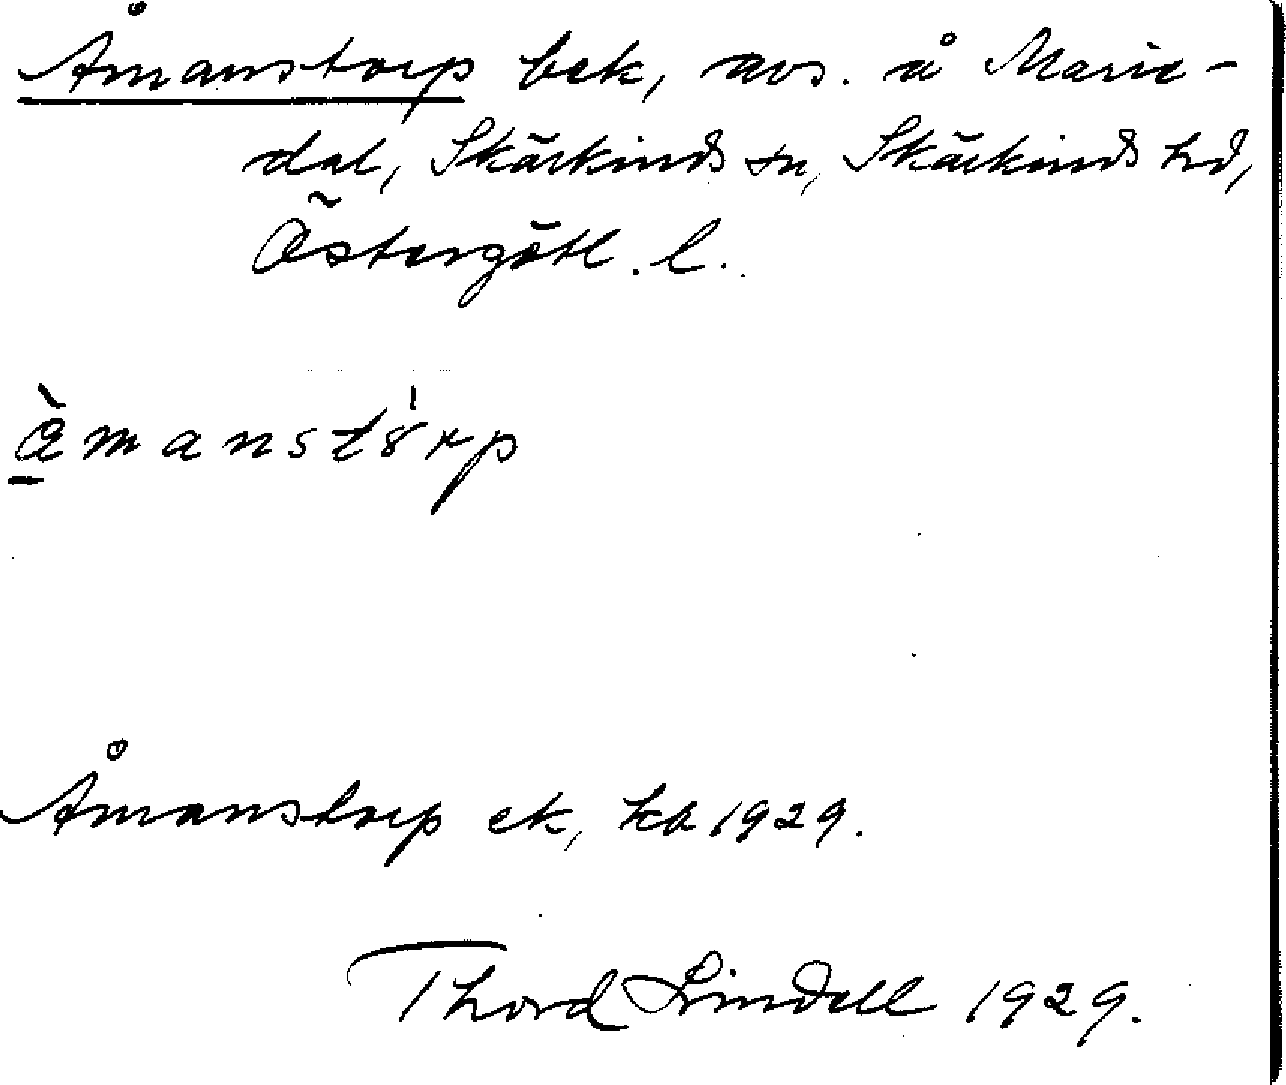 Åmanstorp bek, avs. å Marie-
dal, Skärkinds sn, Skärkinds hd,
Östergötl. l.
àmanstörp
Åmanstorp ek, kb 1929.
Thord Lindell 1929.